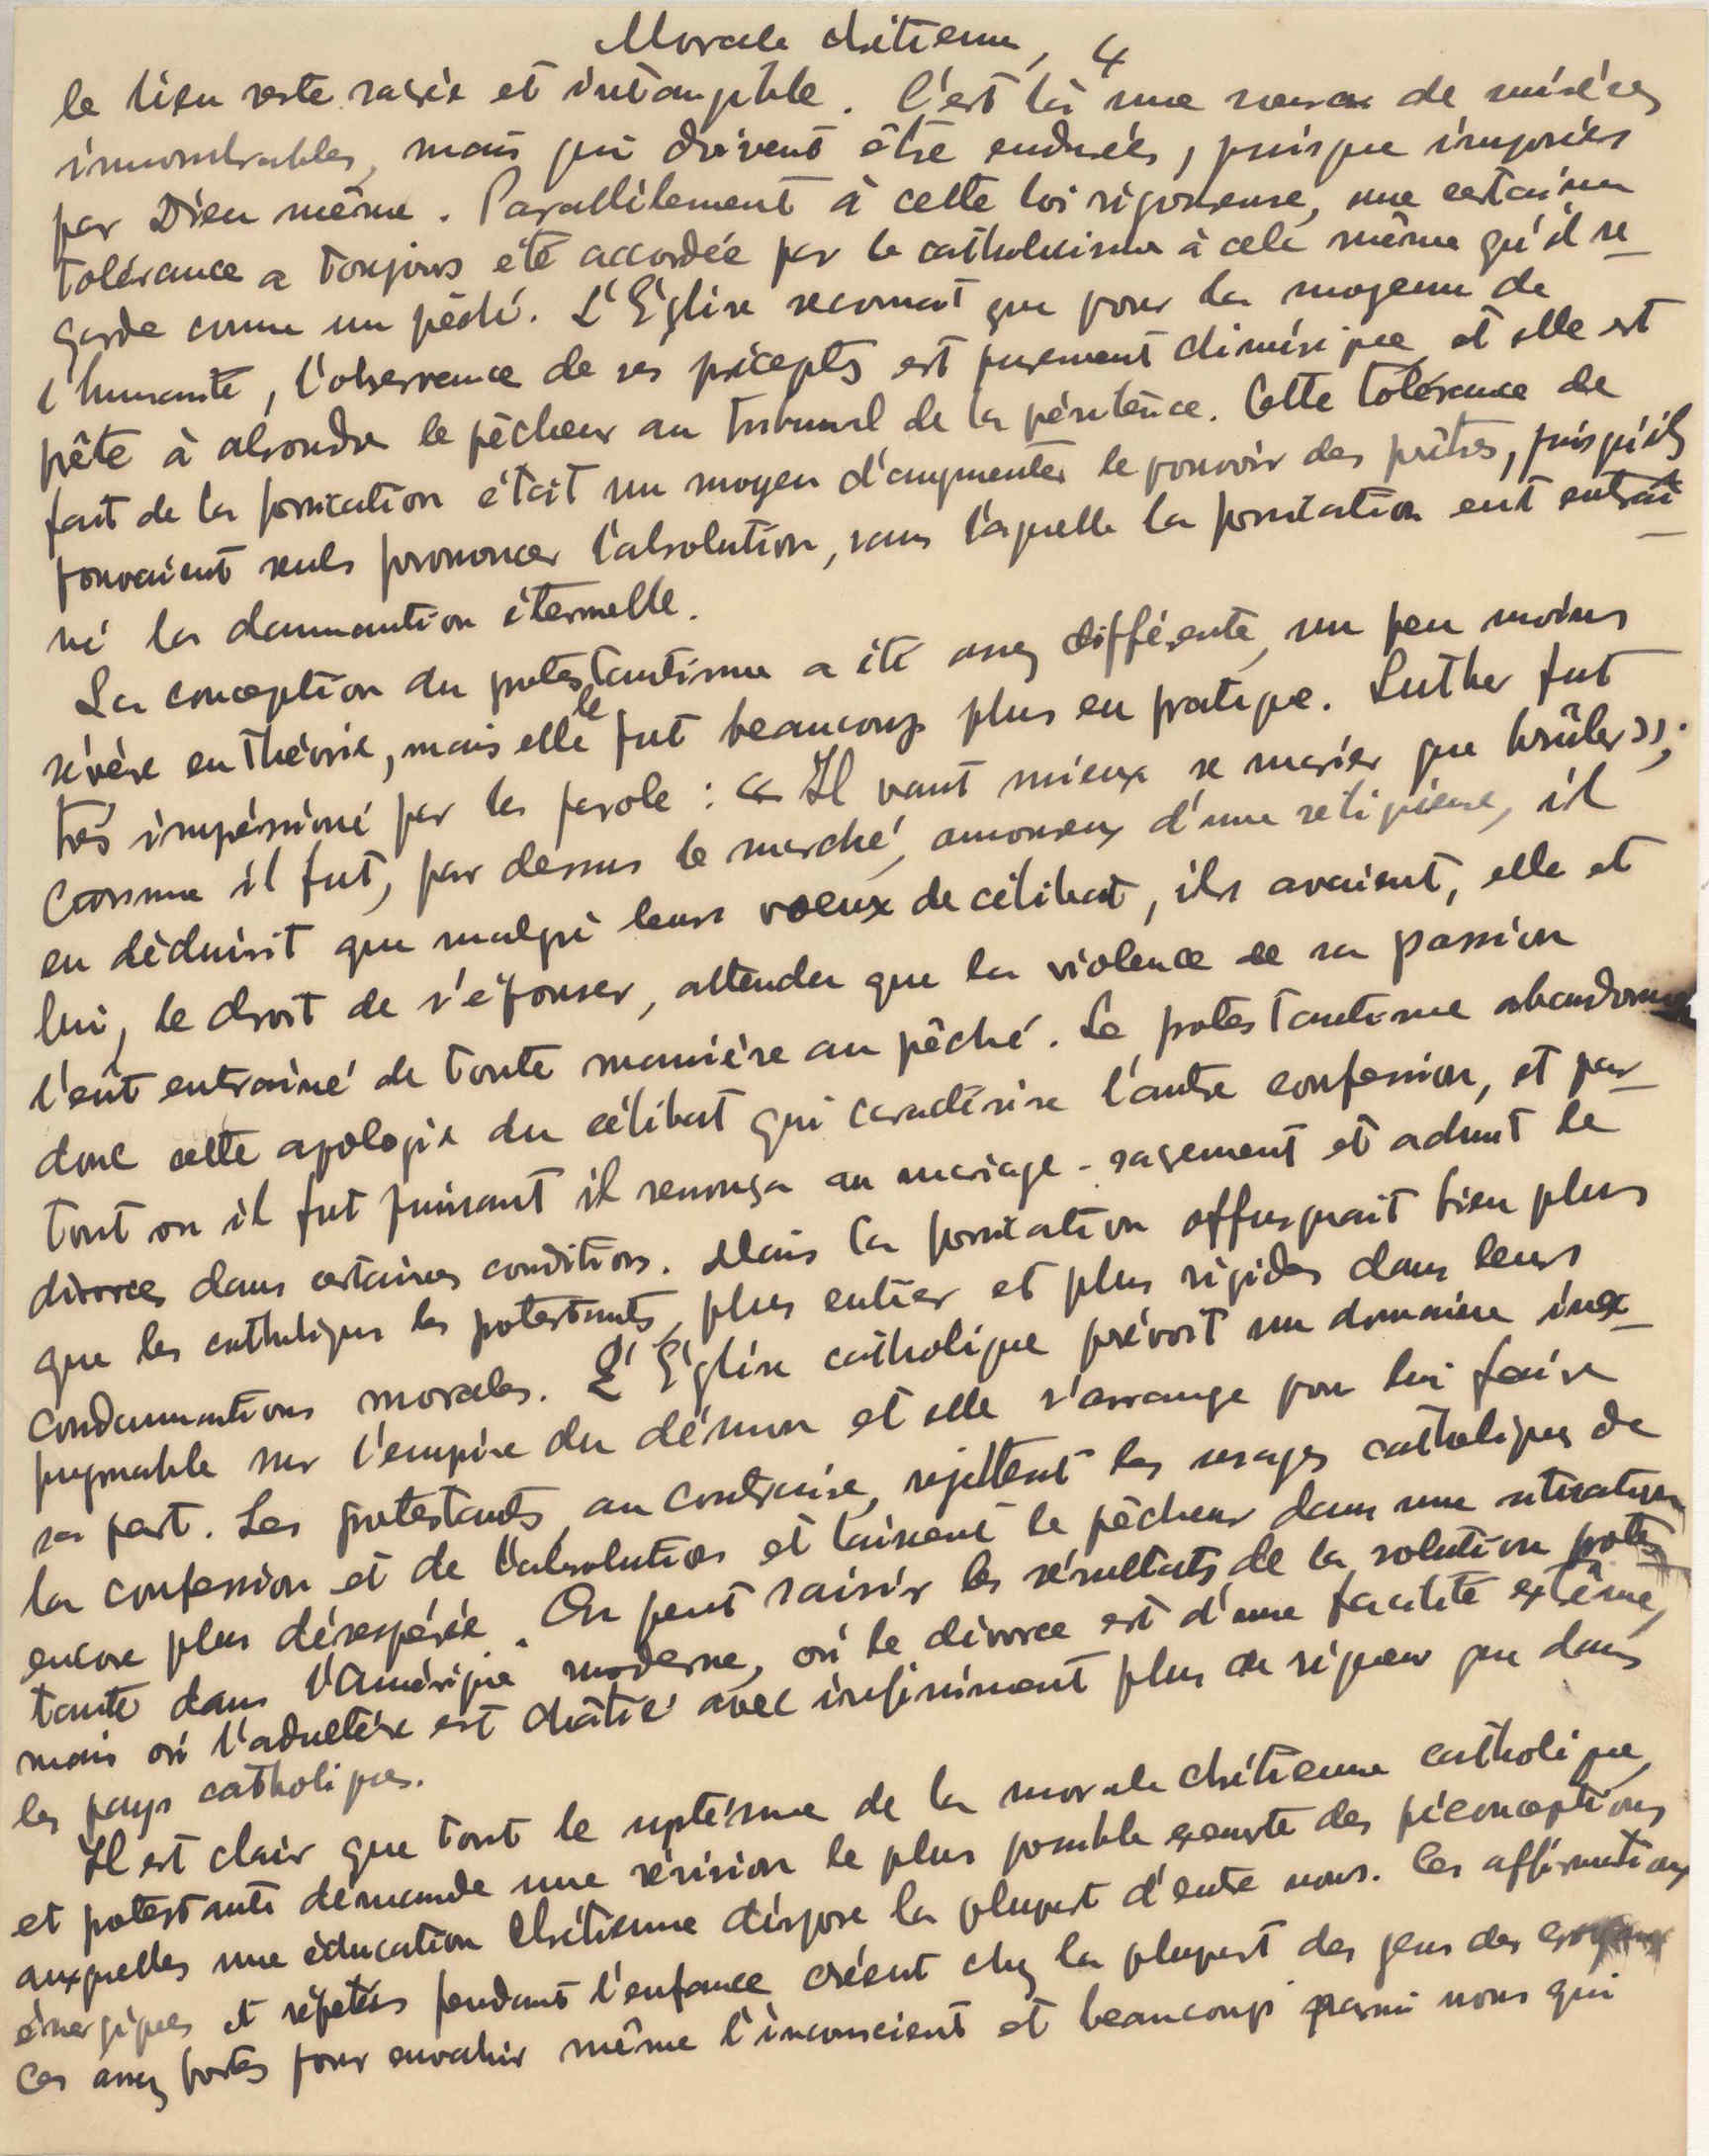 Morale chrétienne, 4
le lien reste sacré et intangible. C'est là une source de misères
innombrables, mais qui doivent être endurées, puisque imposées
par Dieu même. Parallèlement à cette loi rigoureuse, une certaine
tolérance a toujours été accordée par le catholicisme à cela même qu'il re-
garde comme un péché. L'Eglise reconnait que pour la moyenne de
l'humanité, l'observance de ses préceptes est purement chimérique et elle est
prête à absoudre le pêcheur au tribunal de la pénitence. Cette tolérance de
fait de la fornication était un moyen d'augmenter le pouvoir des prêtres, puisqu'ils
pouvaient seuls prononcer l'absolution, sans laquelle la fornication eut entraî-
né la damnation éternelle.
La conception du protestantisme a été assez différente, un peu moins
sévère en théorie, mais elle le fut beaucoup plus en pratique. Luther fut
très impressioné par la parole : « Il vaut mieux se marier que brûler »;
comme il fut, par dessus le marché, amoureux d'une religieuse, il
en déduisit que malgré leurs voeux de célibat, ils avaient, elle et
lui, le droit de s'épouser, attendu que la violence de sa passion
l'eût entrainé de toute manière au pêché. Le protestantisme abandonna
donc cette apologie du célibat qui caractérise l'autre confession, et par-
tout ou il fut puissant il renonça au mariage-sacrement et admit le
divorce dans certaines conditions. Mais la fornication offusquait bien plus
que les catholiques les protestants, plus entier et plus rigides dans leurs
condamnations morales. L'Eglise catholique prévoit un domaine inex-
pugnable sur l'empire du démon et elle s'arrange pour lui faire
sa part. Les protestants, au contraire, rejettent les usages catholiques de
la confession et de l'absolution et laissent le pêcheur dans une situation
encore plus désespérée. On peut saisir les résultats de la solution protes
tante dans l'Amérique moderne, où le divorce est d'une facilité extrême,
mais où l'adultère est châtié avec infiniment plus de rigueur que dans
les pays catholiques.
Il est clair que tout le système de la morale chrétienne catholique,
et protestante demande une révision le plus possible exempte des préconceptions
auxquelles une éducation chrétienne dispose la plupart d'entre nous. Les affirmations
énergiques et répétées pendant l'enfance créent chez la plupart des gens des croyan
ces assez fortes pour envahir même l'inconscient et beaucoup parmi nous qui